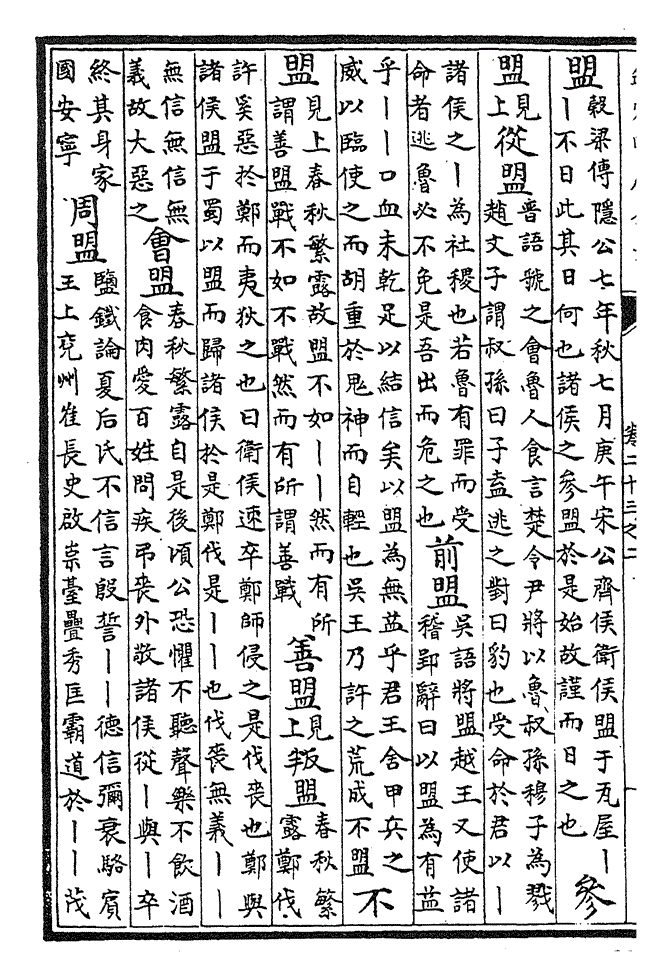 卷二十三之二
盟
穀梁傳隱公七年秋七月庚午宋公齊侯衛侯盟于瓦屋丨
丨不日此其日何也諸侯之參盟於是始故謹而日之也
參
盟
見
上
從盟
晉語虢之會魯人食言楚令尹將以魯叔孫穆子為戮
趙文子謂叔孫曰子盍逃之對曰豹也受命於君以丨
諸侯之丨為社稷也若魯有罪而受
命者逃魯必不免是吾出而危之也
前盟
吳語將盟越王又使諸
稽郢辭曰以盟為有益
乎丨丨口血未乾足以結信矣以盟為無益乎君王舍甲兵之
威以臨使之而胡重於鬼神而自輕也吳王乃許之荒成不盟
不
盟
見上春秋繁露故盟不如丨丨然而有所
謂善盟戰不如不戰然而有所謂善戰
善盟
見
上
叛盟
春秋繁
露鄭伐
許奚惡於鄭而夷狄之也曰衛侯速卒鄭師侵之是伐喪也鄭與
諸侯盟于蜀以盟而歸諸侯於是鄭伐是丨丨也伐喪無義丨丨
無信無信無
義故大惡之
會盟
春秋繁露自是後頃公恐懼不聽聲樂不飲酒
食肉愛百姓問疾弔喪外敬諸侯從丨與丨卒
終其身家
國安寧
周盟
鹽鐵論夏后氏不信言殷誓丨丨德信彌衰駱賓
王上兗州崔長史啟崇臺疊秀匡霸道於丨丨茂